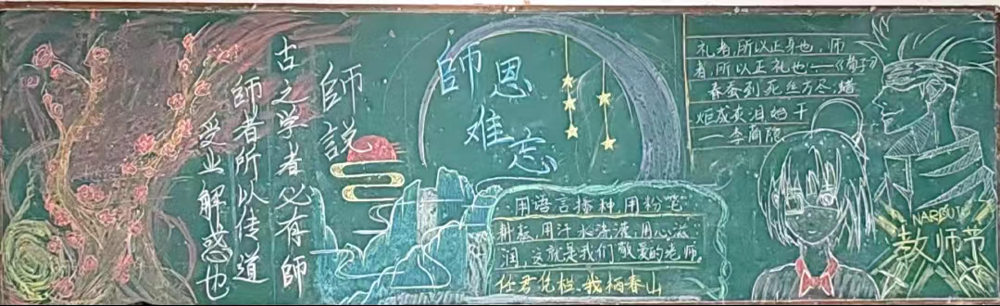 師説
古之学者必有師
師者所以传道
受业解惑也
師恩
难忘
礼者,所以正身也,师
者,所以正礼也.——《荀子》
春蚕到死丝方尽,蜡
炬成灰泪始干
——李商隐
用语言播种,用粉笔
耕耘,用汗水浇灌,用心滋
润,这就是我们敬爱的老师.
任君凭栏,我栖春山
NARUTO
教师节